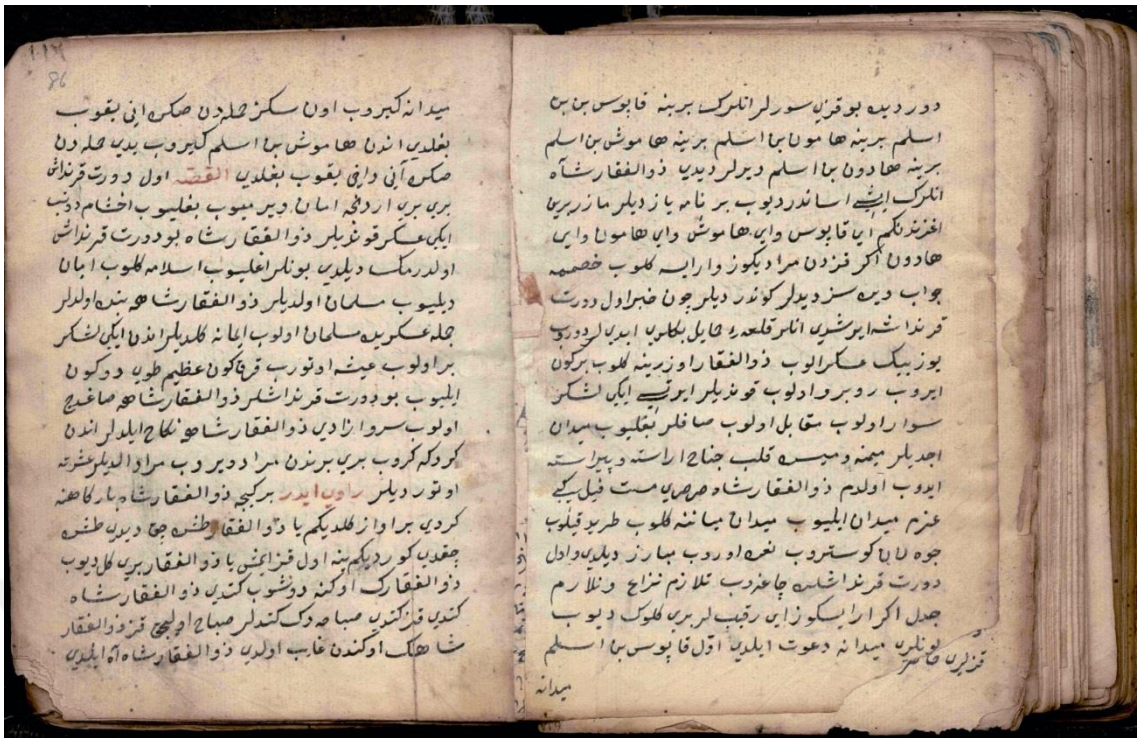 دوردیكه بو قزی سورلر انلرك برینه قابوس بن بن
اسلم برینه هامون بن اسلم برینه هاموش بن اسلم
برینه هادون بن اسلم دیرلر دیدی ذوالفقار شاه
انلرك ایشی اساندر دیوب بر نامه یازدیلر مازربرین
اغزندنكم ای قابوس وای هاموش وای هامون وای
هادون اكر قزدن مرادیكوز وارایسه كلوب خصممه
جواب ویره سز دیدلر كوندردیلر چون خبر اول دورت
قرنداشه ایرشدی انلر قلعه حایل بكلری ایدیلر دورت
یوز بیك عسكر الوب ذوالفقار اوزرینه كلوب بركون
ایروب روبرو اولوب قوندیلر ایرتسی ایكی لشكر
سوار اولوب مقابل اولوب صافلر بغلیوب میدان
اجدیلر میمنه ومیسره قلب جناح اراسته وپیراسته
ایدوب اولدم ذوالفقار شاه صرصری مست فیل كبی
عزم میدان ایلیوب میدان میاننه كلوب طرید قیلوب
جولان كوستروب نعره اوروب مبارز دیلدی واول
دورت قرنداشلره چاغردب تلازم نزاع وتلازم
جدل اكر ارایسكوز ای رقیبلر بری كلوك دیوب
بونلری میدانه دعوت ایلدی اول قابوس بن اسلم
میدانه
86
میدانه كیروب اون سكز حمله دن صكره انی یقوب
بغلدی اندن هاموش بن اسلم كیروب یدی حمله دن
صكره آنی داخی یقوب بغلدی القصه اول دورت قرنداش
بری بری اردنجه امان ویرمیوب بغلیوب اخشام دونب
ایكی عسكر قوندیلر ذوالفقار شاه بو دورت قرنداش
اولدرمك دیلدی بونلر اغلیوب اسلامه كلوب امان
دیلیوب مسلمان اولدیلر ذوالفقار شاهه بنده اولدلر
جمله عسكریله مسلمان اولوب ایمانه كلدیلر اندن ایكی لشكر
بر اولوب عیشه اوتورب قرق كون عظیم طوی دوكون
ایلیوب بو دورت قرنداشلر ذوالفقار شاهه صاغدج
اولوب سروازادی ذوالفقار شاهه نكاح ایلدلر اندن
كردكه كروب بری برندن مراد ویروب مراد الدیلر عشرته
اوتوردیلر راوی ایدر بر كیجه ذوالفقار شاه باركاهنه
كردی بر اواز كلدیكم یا ذوالفقار طشره چق دیدی طشره
چقدی كوردیكم ینه اول قز ایمش یا ذوالفقار بری كل دیوب
ذوالفقارك اوكنه دوشوب كتدی ذوالفقار شاه
كتدی قز كتدی صباحه دك كتدلر صباح اولیجق قز ذوالفقار
شاهك اوكندن غایب اولدی ذوالفقار شاه آه ایلدی